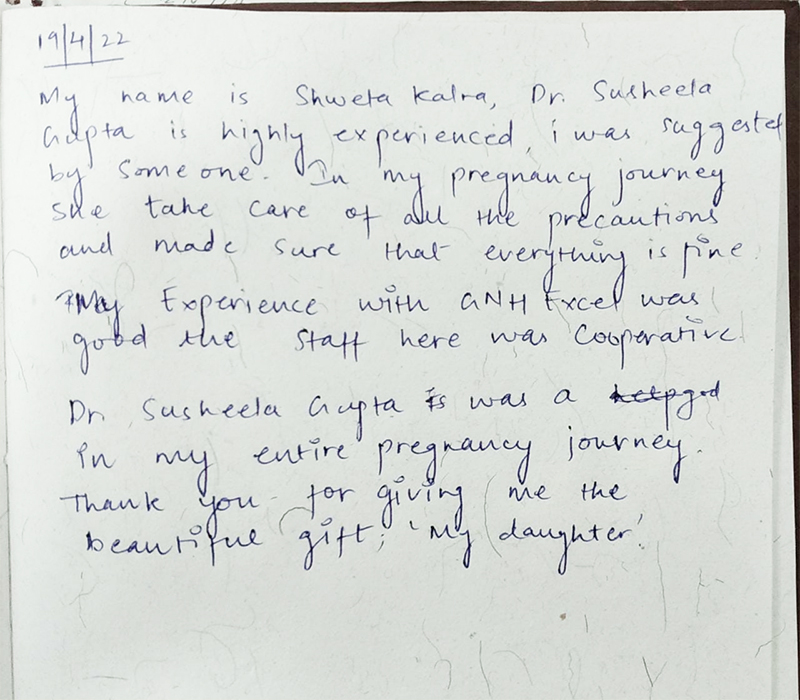 19/4/22
My name is Shweta Kalra, Dr. Susheela
Gupta is highly experienced, i was suggested
by someone. In my pregnancy journey
she take care of all the precautions
and made sure that everything is fine.
My Experience with GNH Excel was
good the staff here was cooperative.
Dr. Susheela Gupta is was a
in my entire pregnancy journey.
Thank you for giving me the
beautiful gift, 'My daughter'.